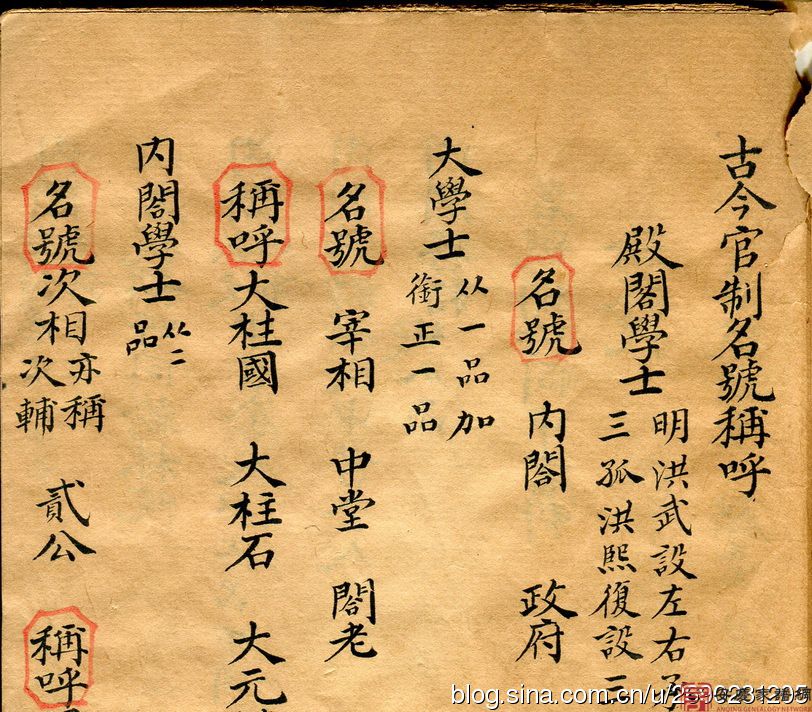 古今官制名號稱呼
殿閣學士 明洪武設左右
三孤洪熙復設三
名號 内閣 政府
大學士 从一品加
銜正一品
名號 宰相 中堂 閣老
稱呼 大柱國 大柱石 大元
内閣學士 从二
品
名號 次相 亦稱
次輔 貳公 稱呼
blog.sina.com.cn/u/
ANQING GENEALOGY NETWORK